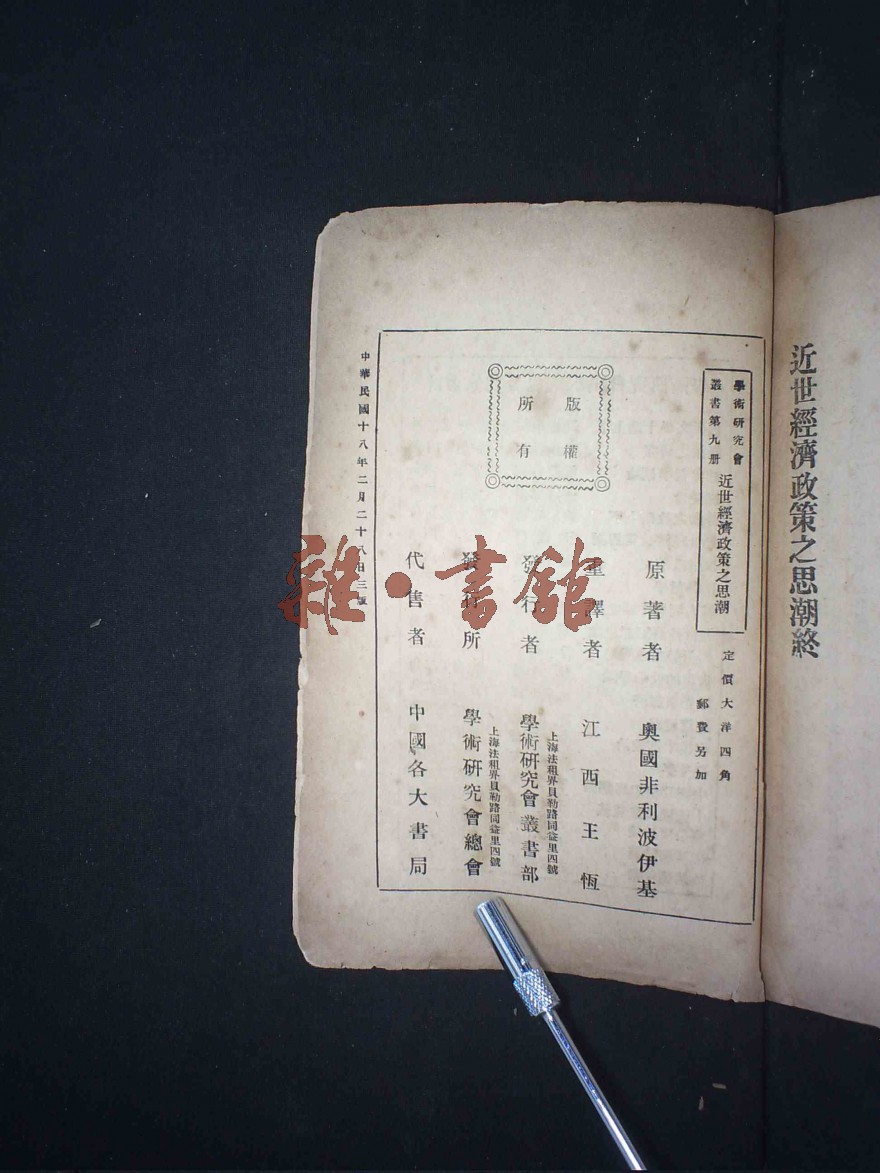 近世經濟政策之思潮終
學術研究會
叢書第九册
近世經濟政策之思潮
定價大洋四角
郵費另加
原著者 奧國非利波伊基
重譯者 江西王恆
版權
所有
上海法租界貝勒路同益里四號
發行者 學術研究會叢書部
上海法租界貝勒路同益里四號
發行所 學術研究會總會
代售者 中國各大書局
中華民國十八年二月二十八日三版
雜·書館